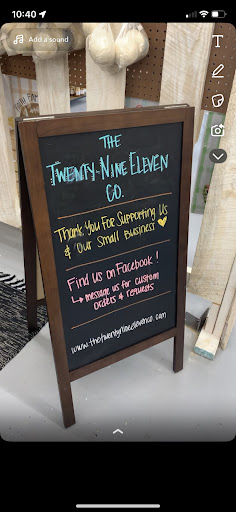 10:40
Add a sound
T
THE
TWENTY-NINE ELEVEN
CO.
Thank You For Supporting Us
& Our Small Business
Find us on Facebook!
message us for custom
orders & requests
www.thetwentynineelevenco.com